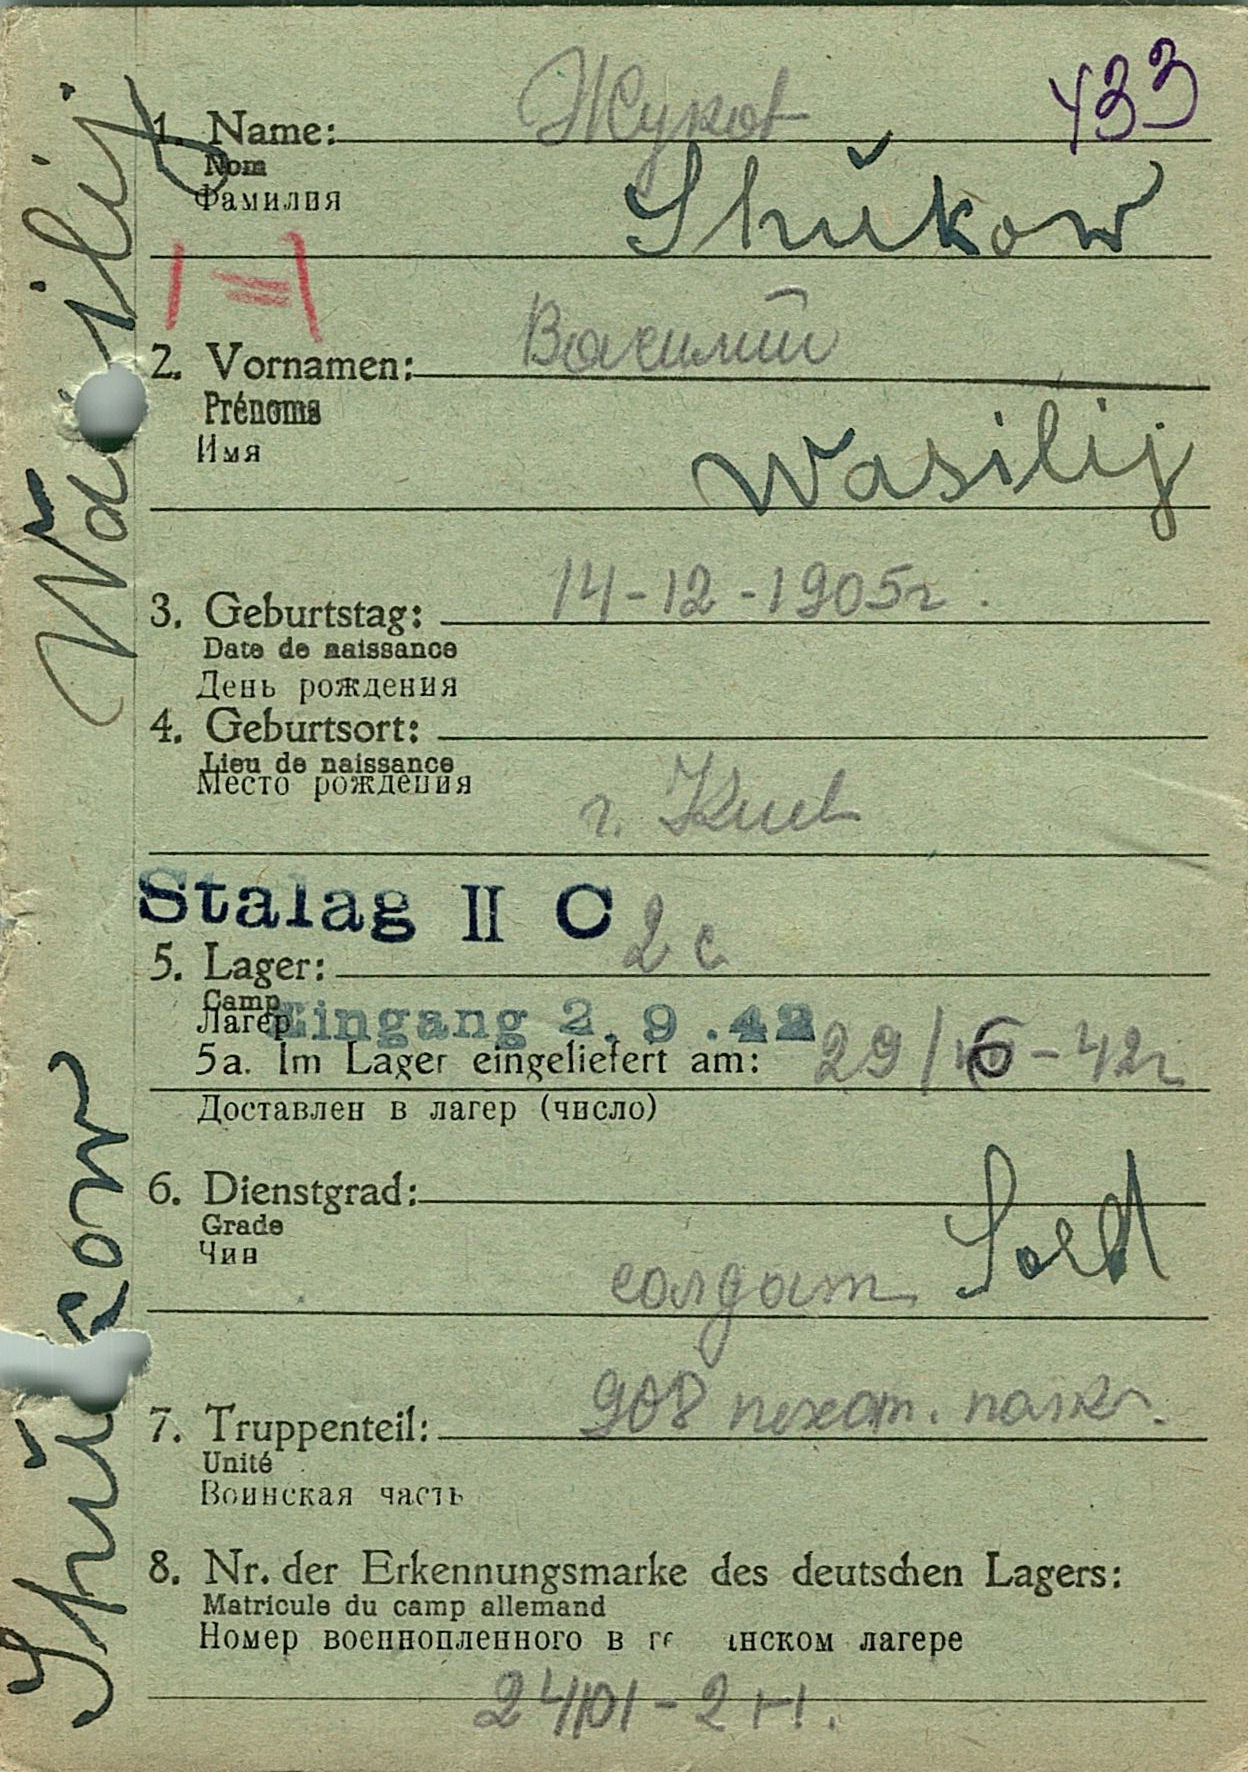 433
1. Name: Жуков
Nom
Фамилия
Shŭkow
2. Vornamen: Василий
Prénoms
Имя
Wasilij
3. Geburtstag: 14-12-1905г.
Date de naissance
День рождения
4. Geburtsort:
Lieu de naissance
Место рождения
г. Киев
Stalag II C
5. Lager: 2 c
Camp
Лагер
Eingang 2. 9. 42
5a. Im Lager eingeliefert am: 29/6-42г
Доставлен в лагер (число)
6. Dienstgrad:
Grade
Чин
солдат Sold
7. Truppenteil: 908 пехот. полк.
Unité
Воинская часть
8. Nr. der Erkennungsmarke des deutschen Lagers:
Matricule du camp allemand
Номер военнопленного в ге нском лагере
24101-2
Shŭkow Wasilij